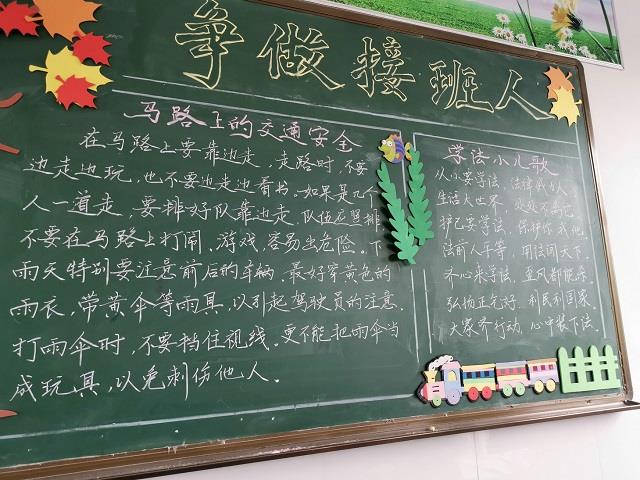 争做接班人
马路上的交通安全
在马路上要靠边走，走路时，不要
边走边玩，也不要边走边看书。如果是几个
人一道走，要排好队靠边走，队伍应照排
不要在马路上打闹、游戏，容易出危险。下
雨天特别要注意前后的车辆，最好穿黄色的
雨衣，带黄伞等雨具，以引起驾驶员的注意.
打雨伞时，不要挡住视线。更不能把雨伞当
成玩具，以免刺伤他人.
学法小儿歌
从小要学法，法律
生活大世界，处处不离它
护乙安学法，保护你我他
法前人平等，用法闯天下
齐心来学法，歪风都能刹
弘扬正气好，利民利国家
大家齐行动，心中装下法.